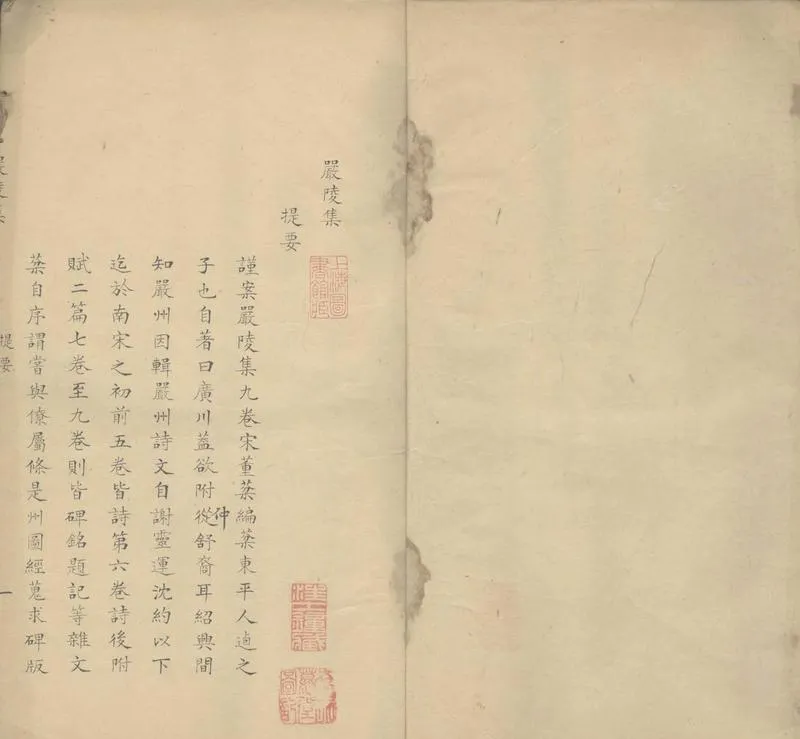 嚴陵集
提要
上海圖書館藏
謹案嚴陵集九卷宋董棻編棻東平人逌之
子也自著曰廣川蓋欲附從仲舒裔耳紹興間
知嚴州因輯嚴州詩文自謝靈運沈約以下
迄於南宋之初前五卷皆詩第六卷詩後附
賦二篇七卷至九卷則皆碑銘題記等雜文
棻自序謂嘗與僚屬條是州圖經蒐求碑版
嚴陵集
提要
一